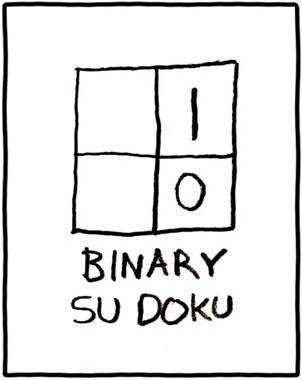 1
0
BINARY
SU DOKU